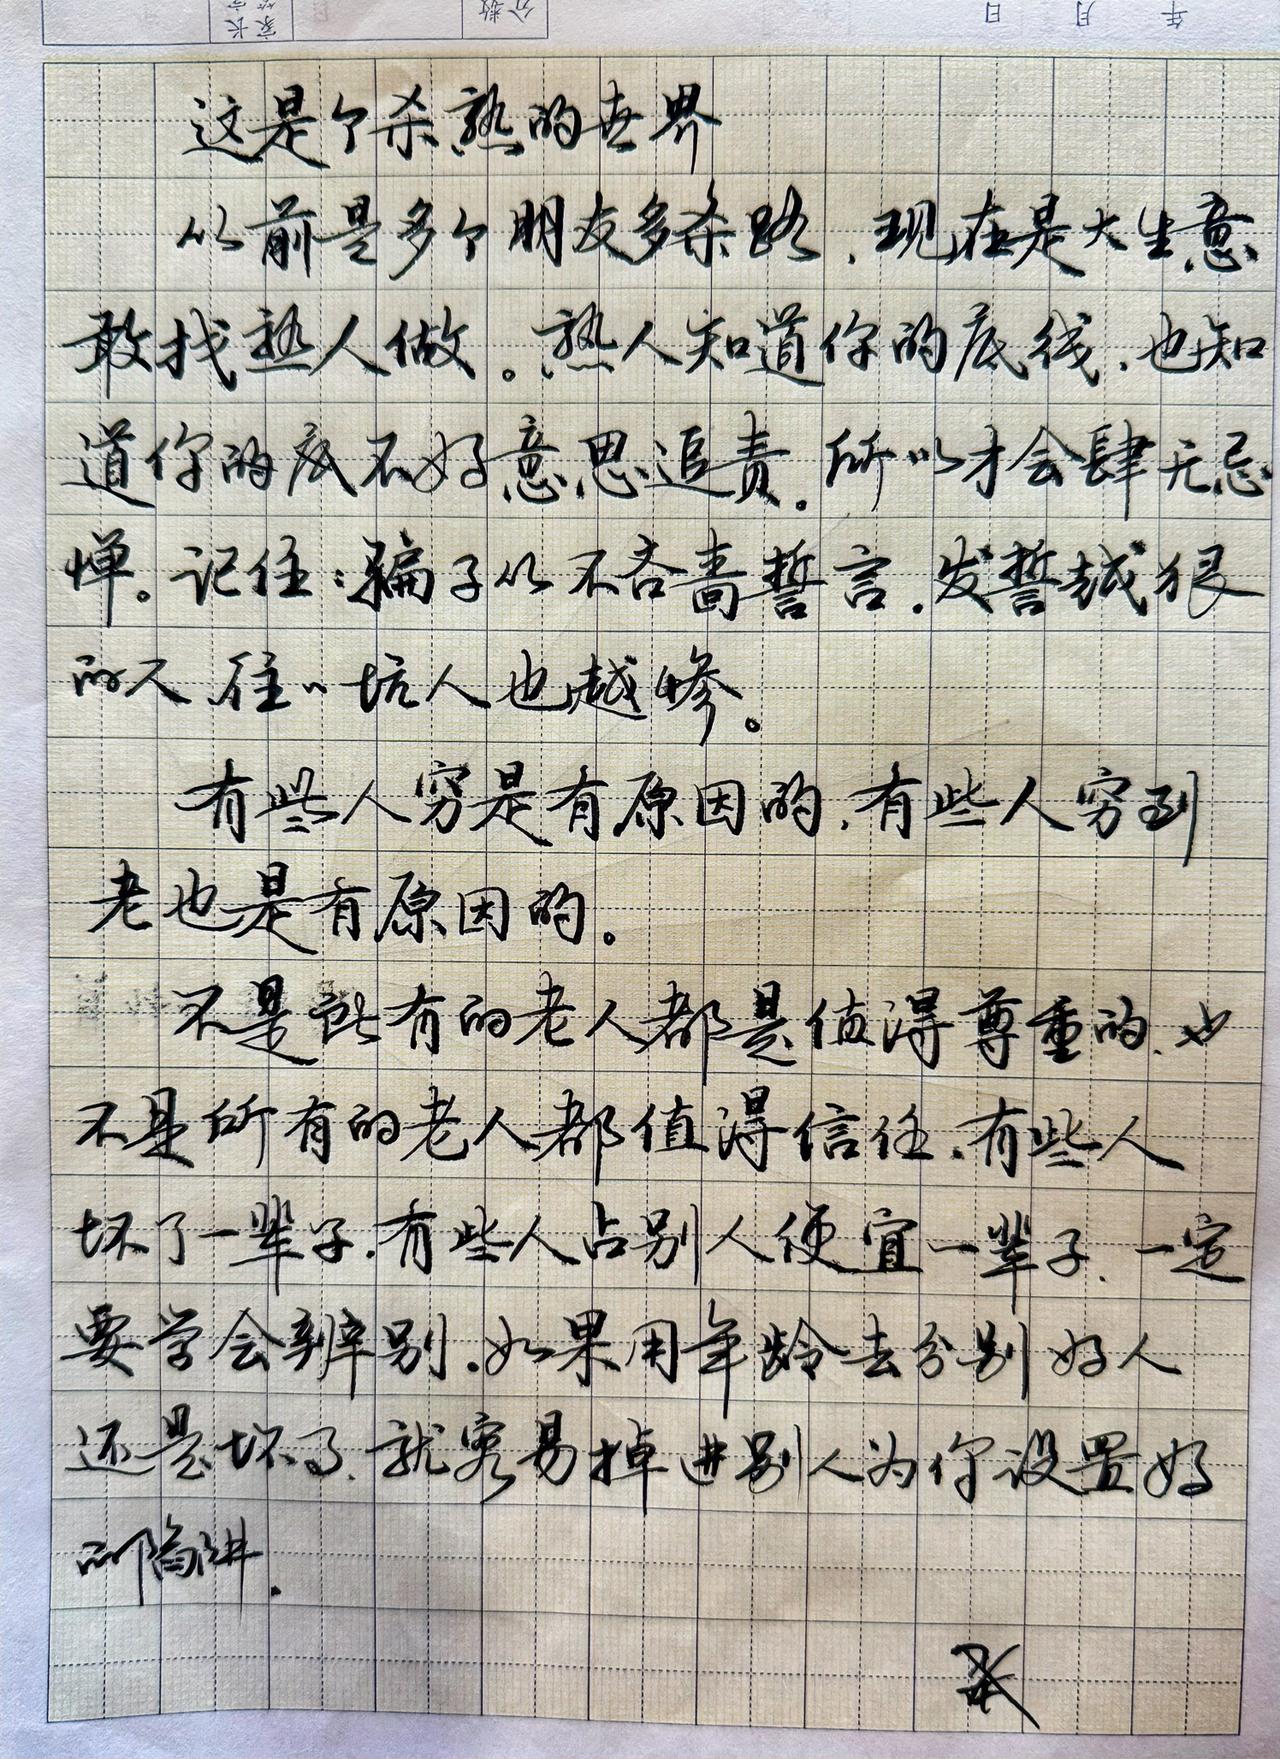 年 月 日
分数
家长
这是个杀熟的世界
以前是多个朋友多条路,现在是大生意
敢找熟人做。熟人知道你的底线,也知
道你的底不好意思追责。所以才会肆无忌
惮。记住:骗子从不吝啬誓言,发誓越狠
的人,往々坑人也越惨。
有些人穷是有原因的,有些人穷到
老也是有原因的。
不是所有的老人都是值得尊重的,也
不是所有的老人都值得信任,有些人
坏了一辈子,有些人占别人便宜一辈子,一定
要学会辨别。如果用年龄去分别好人
还是坏了,就容易掉进别人为你设置好
的陷阱。